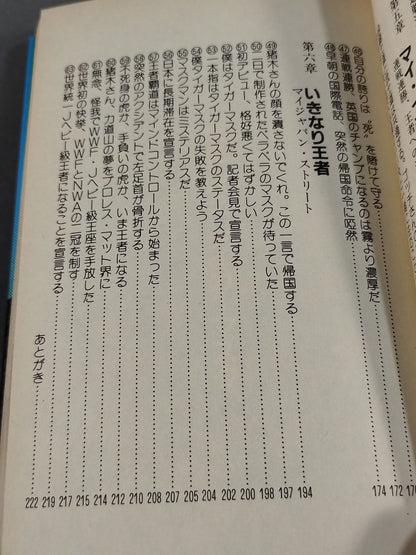 第五章
連戦連勝、
㊻自分の誇りは“死”を賭けて守る
㊼連戦連勝、英国のチャンプになるのは霧より濃厚だ……172
㊽早朝の国際電話、突然の帰国命令に唖然……174
第六章 いきなり王者
マイジャパン・ストリート
㊾猪木さんの顔を潰さないでくれ。この一言で帰国する……194
㊿一日で制作されたペラペラのマスクが待っていた……197
51初デビュー、格好悪くてはずかしい……198
52僕はタイガーマスクだ。記者会見で宣言する……200
53一本指はタイガーマスクのステータスだ……202
54僕タイガーマスクの失敗を教えよう……204
55マスクマンはミステリアスだ……205
56日本に長期滞在を宣言する……207
57王者覇道はマインドコントロールから始まった……208
58突然のアクシデントで左足首が骨折する……210
59不死身の虎か、手負いの虎か、いま王者になる……212
60猪木さん、力道山の夢をプロレス・マット界に……214
61無念、怪我でWWF・Jヘビー級王座を手放した……215
62世界初の快挙、WWFとNWAの二冠を制す……217
63世界統一Jヘビー級王者になることを宣言する……219
あとがき……222